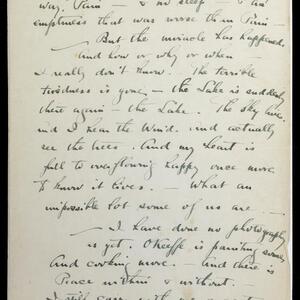 way. Pain — & no sleep — & an
emptiness that was worse than Pain —
— But the miracle has happened
And how or why or when —
I really don't know. The terrible
tiredness is gone — the Lake is suddenly
there again — the Lake. The sky lives.
And I hear the Wind. And actually
see the trees. And my heart is
full to overflowing happy once more
To know it lives. — What an
impossible lot some of us are. —
— I have done no photography
as yet. O'Keeffe is painting some.
And cooking more. — And there is
Peace within & without.
I still